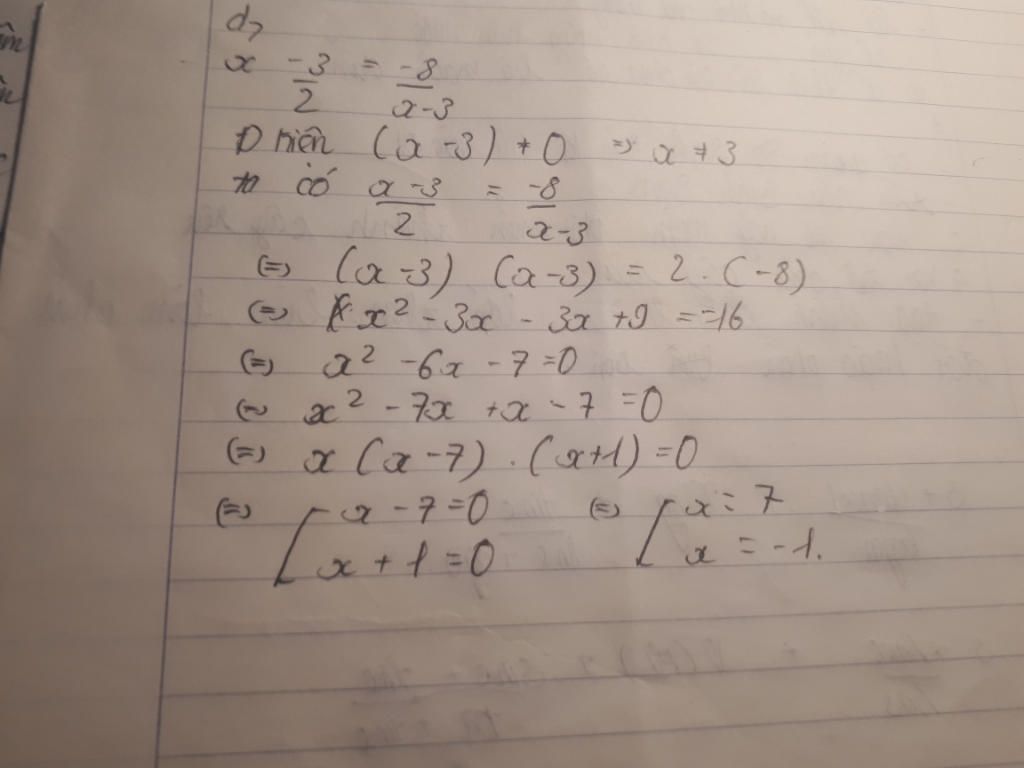 d,
x -3/2 = -8/x-3
Đ kiện (x-3) ≠ 0 => x ≠ 3
ta có x-3/2 = -8/x-3
(=) (x-3) (x-3) = 2 . (-8)
(=) x² - 3x - 3x + 9 = -16
(=) x² - 6x - 7 = 0
(=) x² - 7x + x - 7 = 0
(=) x (x-7) . (x+1) = 0
(=) [ x - 7 = 0 (=) [ x = 7
x + 1 = 0 x = -1.